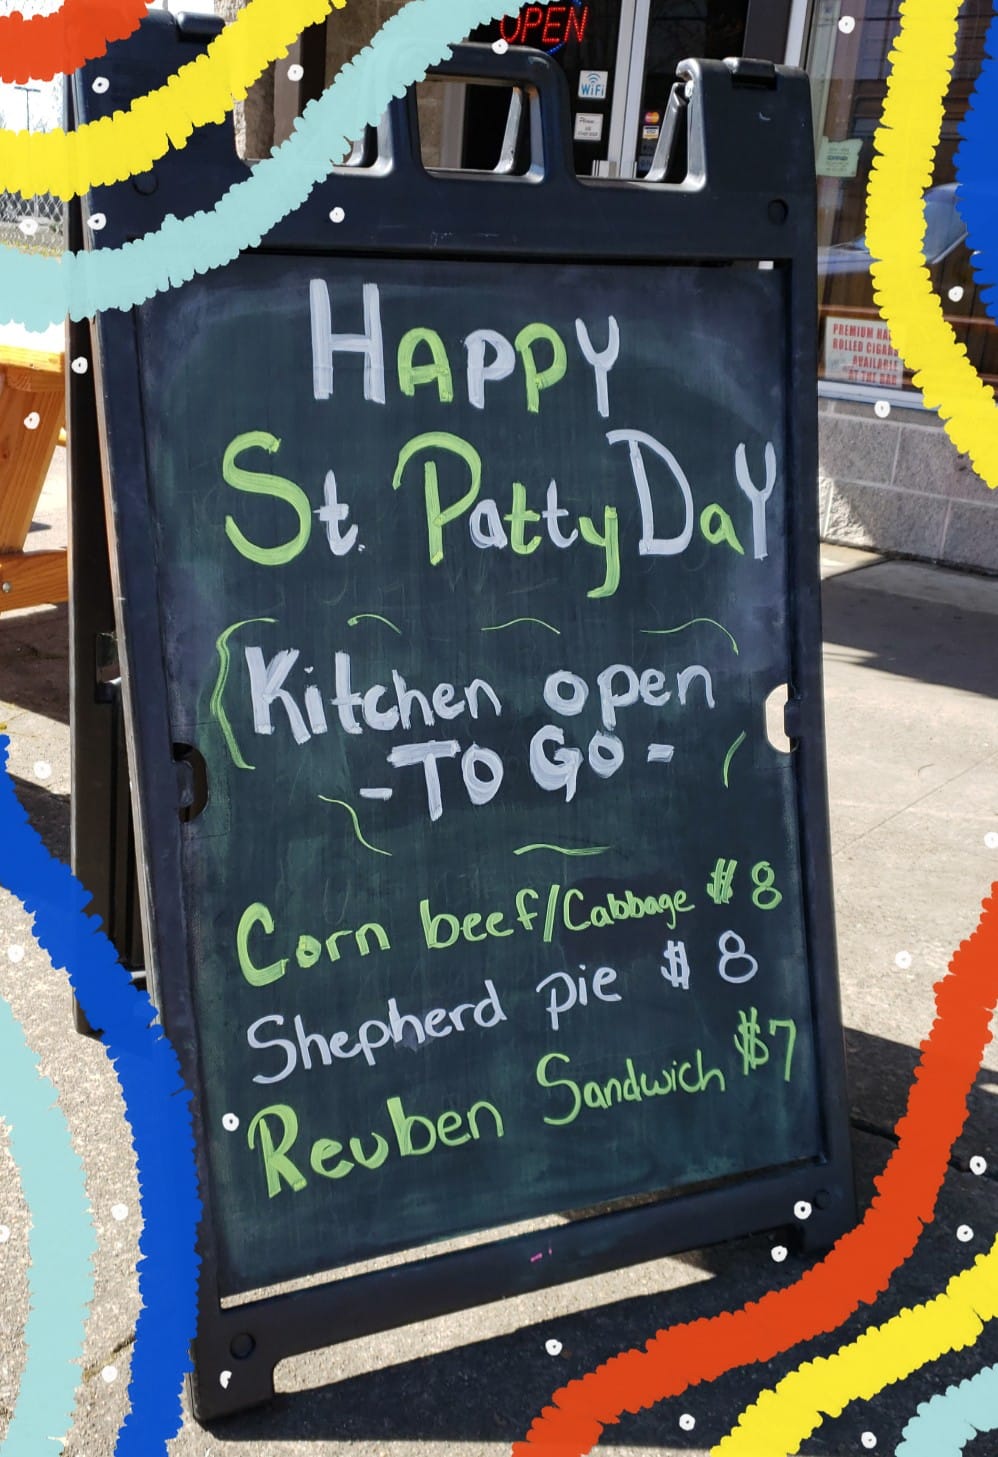 OPEN
WiFi
PREMIUM HA
ROLLED CIGAR
AVAILABLE
AT THE BAR
HAPPY
St. Patty DAY
Kitchen open
- TO GO -
Corn beef/Cabbage $ 8
Shepherd pie $ 8
Reuben Sandwich $7